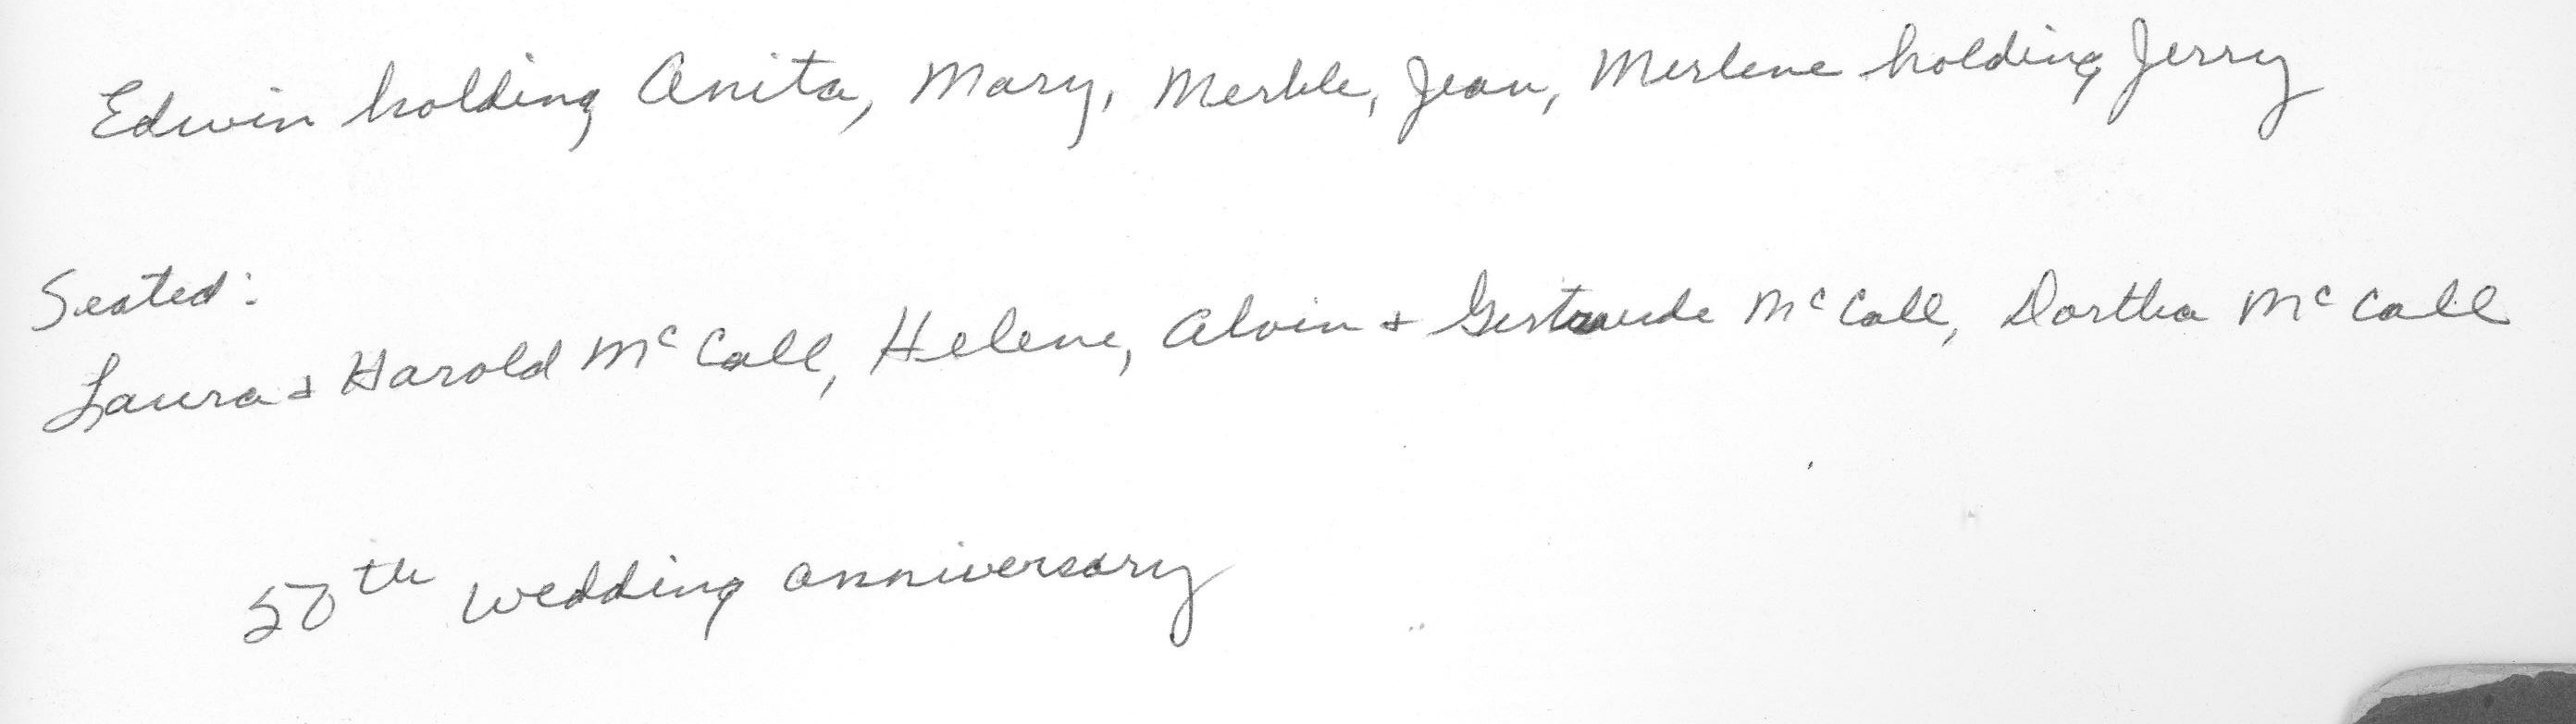 Edwin holding Anita, Mary, Merble, Jean, Merlene holding Jerry
Seated:
Laura & Harold McCall, Helene, Alvin & Gertraude McCall, Dortha McCall
50th wedding anniversary